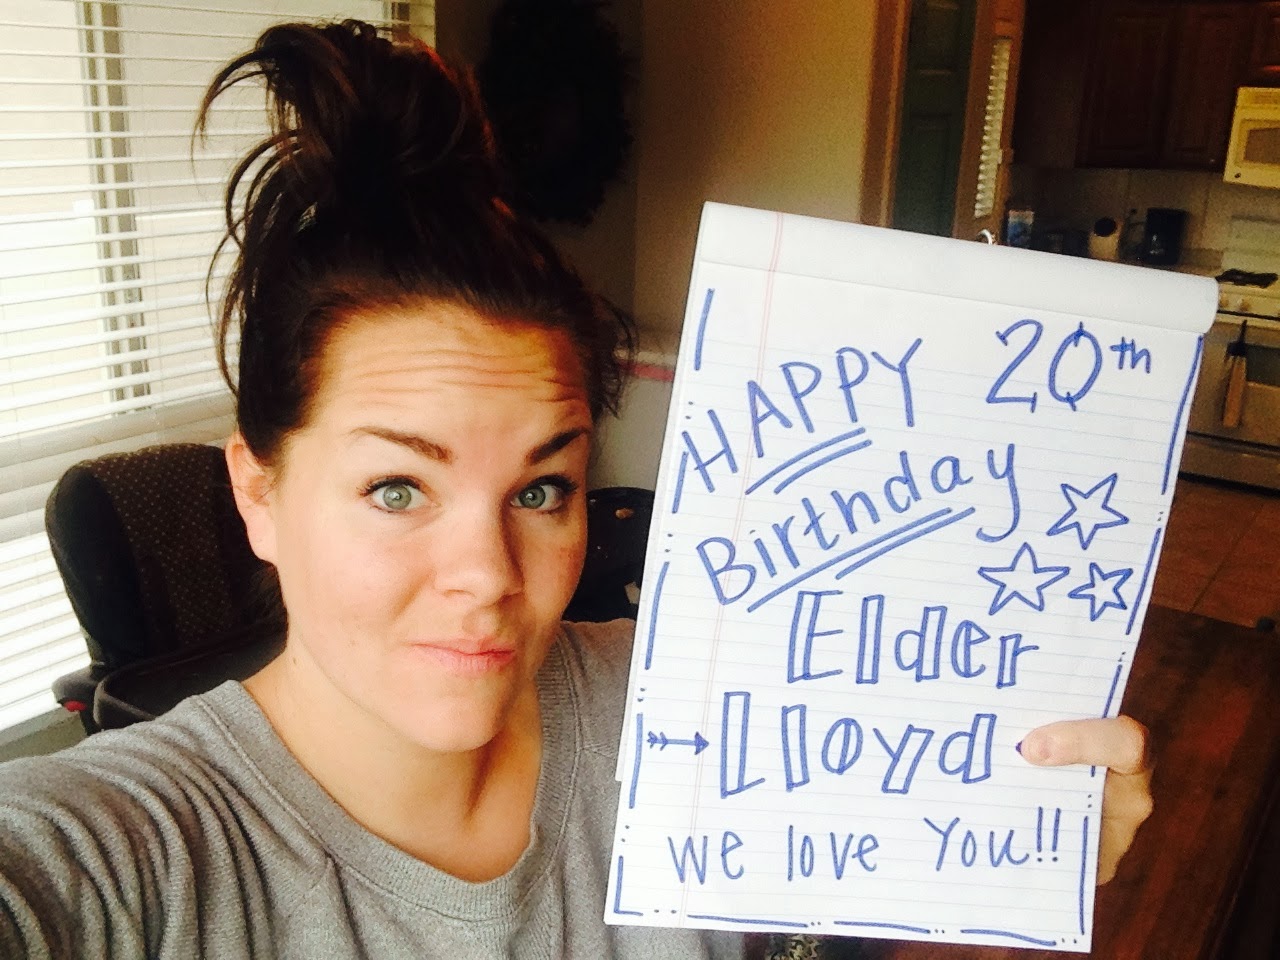 HAPPY 20th
Birthday
Elder
Lloyd
we love you!!